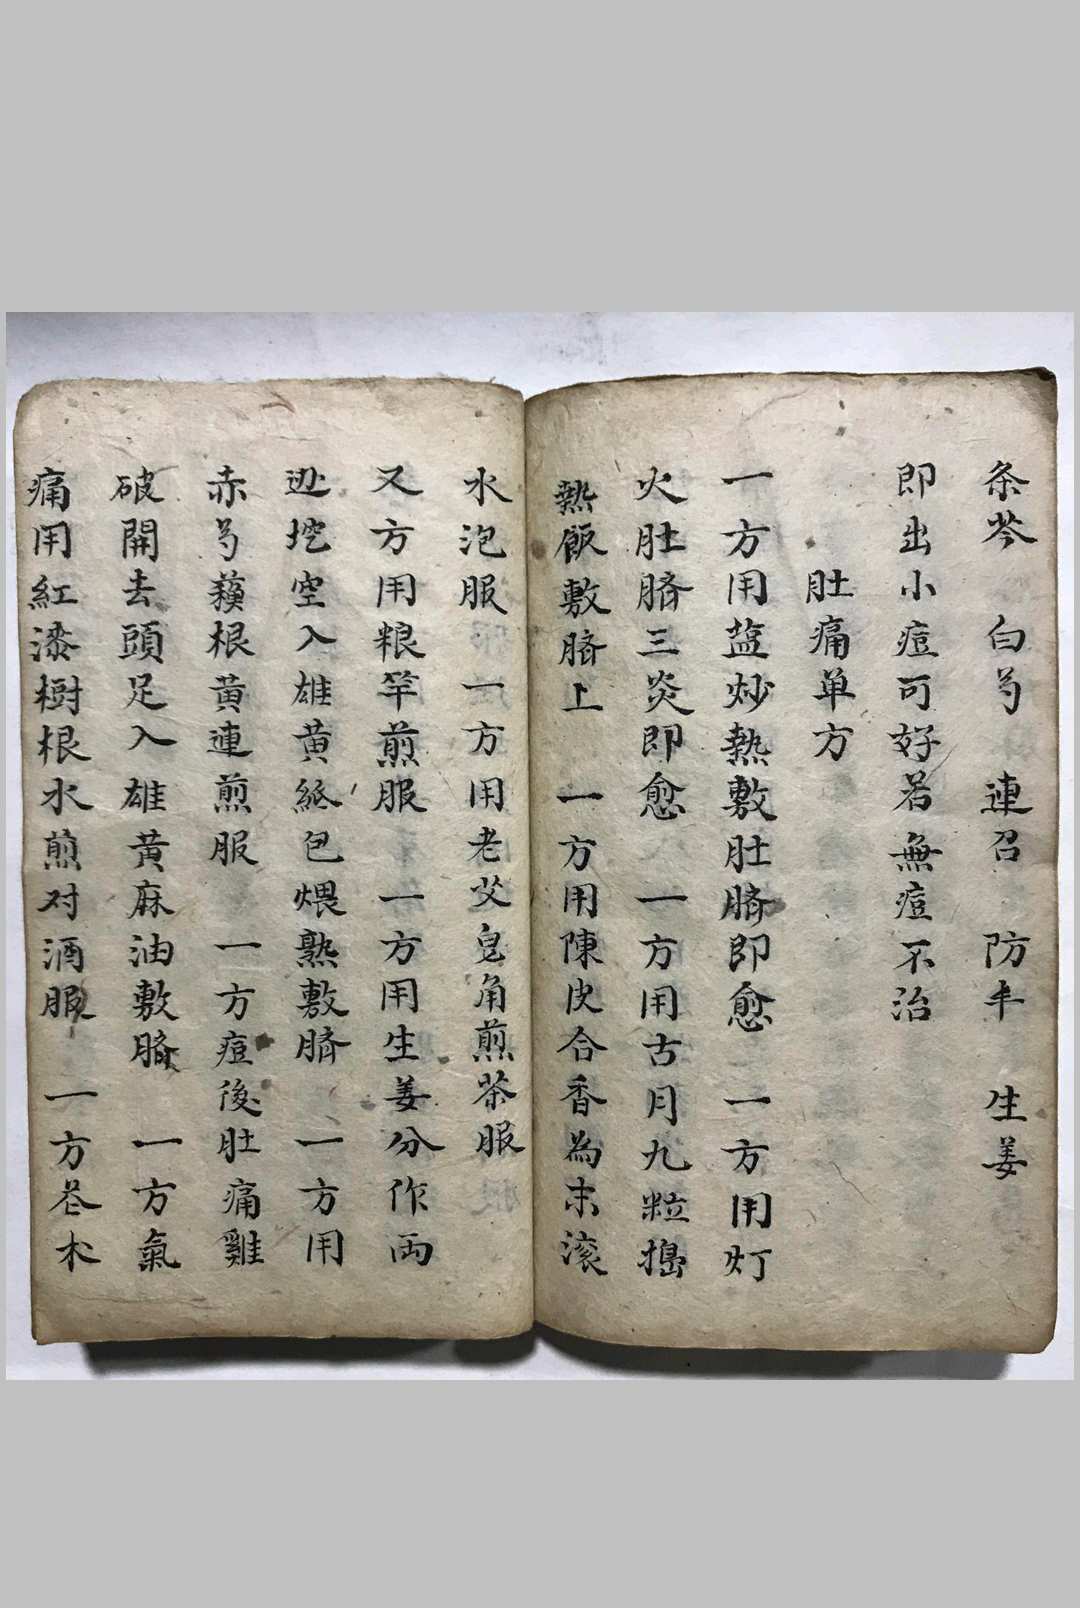 条芩 白芍 連召 防丰 生姜
即出小痘可好若無痘不治
肚痛单方
一方用盐炒熱敷肚臍即愈 一方用灯
火肚臍三炎即愈 一方用古月九粒搗
熱飯敷臍上 一方用陳皮合香為末滚
水泡服 一方用老艾皂角煎茶服
又方用粮竿煎服 一方用生姜分作両
边挖空入雄黄紙包煨熟敷臍 一方用
赤芍蘋根黄連煎服 一方痘後肚痛雞
破開去頭足入雄黄麻油敷臍 一方氣
痛用紅漆樹根水煎对酒服 一方苍术